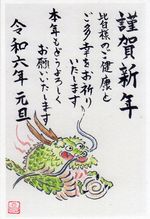 謹賀新年
皆様のご健康と
ご多幸をお祈り
いたします
本年もどうぞよろしく
お願いいたします
令和六年 元旦